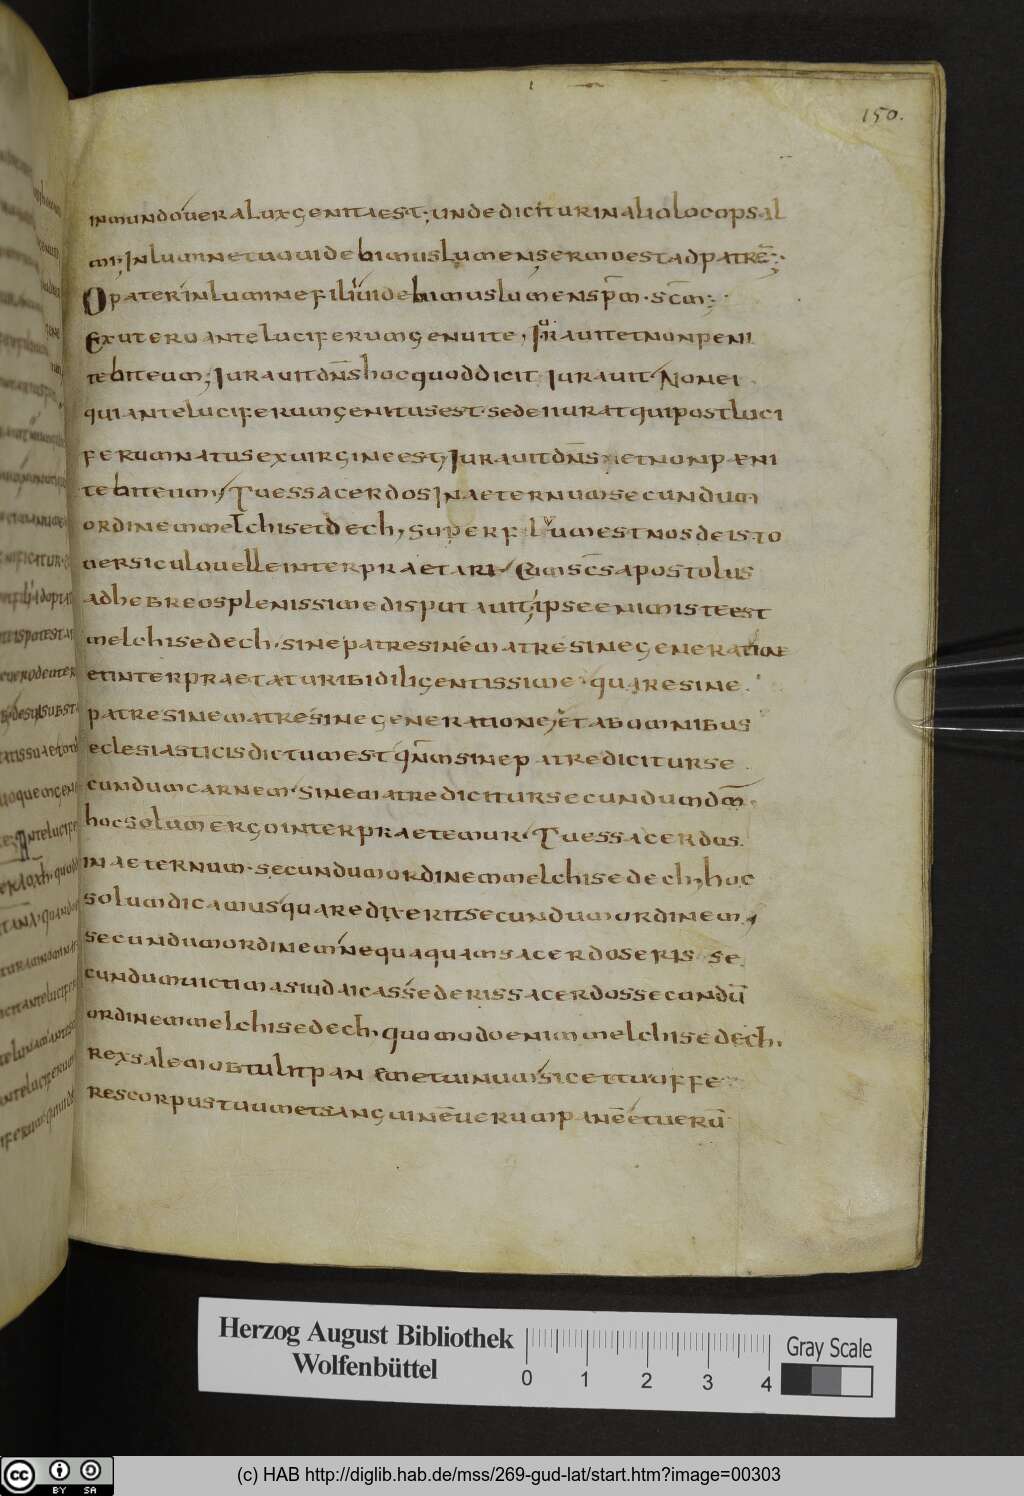 150.
in mundo uera lux genita est; unde dicitur in alio loco psal
mi; In lumine tuo uidebimus lumen sermo est ad patrē;
O pater in lumine filii uidebimus lumen spm̄ scm̄;
Ex utero ante luciferum genui te, Iurauit et non peni
tebit eum; Iurauit dns̄ hoc quod dicit iurauit Non ei
qui ante luciferum genitus est sed ei iurat qui post luci
ferum natus ex uirgine est, Iurauit dns̄ et non pæni
tebit eum, Tu es sacerdos In aeternum secundum
ordinem melchisetdech, Superfluum est nos de isto
uersiculo uelle interpraetari Cum scs̄ apostolus
ad hebreos plenissime disputauit, ipse enim iste est
melchisedech sine patre sine matre sine generatione
et interpraetatur ibi diligentissime quare sine
patre sine matre sine generatione, et ab omnibus
eclesiasticis dictum est qnm̄ sine patre dicitur se
cundum carnem sine matre dicitur secundum dm̄
hoc solum ergo interpraetemur Tu es sacerdos
in aeternum secundum ordinem melchisedech, hoc
solum dicamus quare dixerit secundum ordinem,
secundum ordinem nequaquam sacerdos eris se
cundum uictimas iudaicas sed eris sacerdos secundū
ordinem melchisedech. quomodo enim melchisedech.
rex salem obtulit panem et uinum sic et tu offe
res corpus tuum et sanguinē uerum panē et uerū
Herzog August Bibliothek
Wolfenbüttel
0 1 2 3 4
Gray Scale
cc BY SA
(c) HAB http://diglib.hab.de/mss/269-gud-lat/start.htm?image=00303